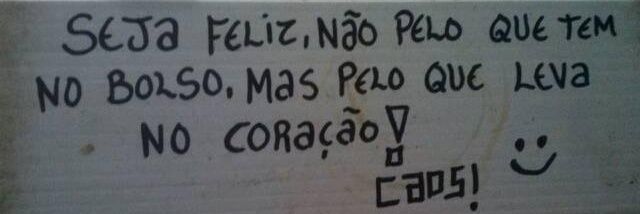 SEJa FELIZ, NÃO PELO QUE TEM
NO BOLSO, Mas PELO QUE LEVA
NO CORaÇÃO!
CaOS!